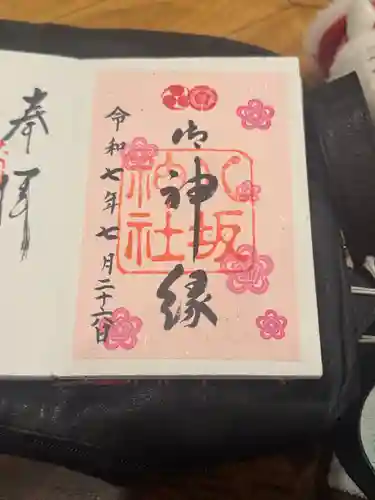 御神縁
八坂
神社
令和七年七月二十六日
奉拝